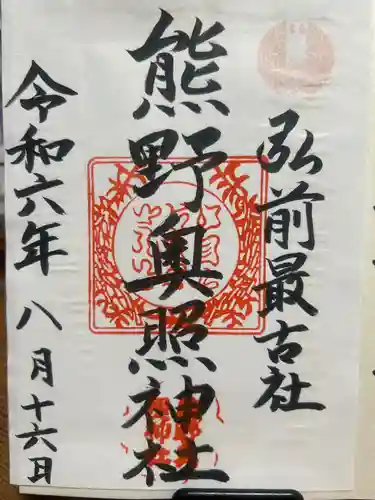 弘前最古社
熊野奥照神社
令和六年 八月十六日